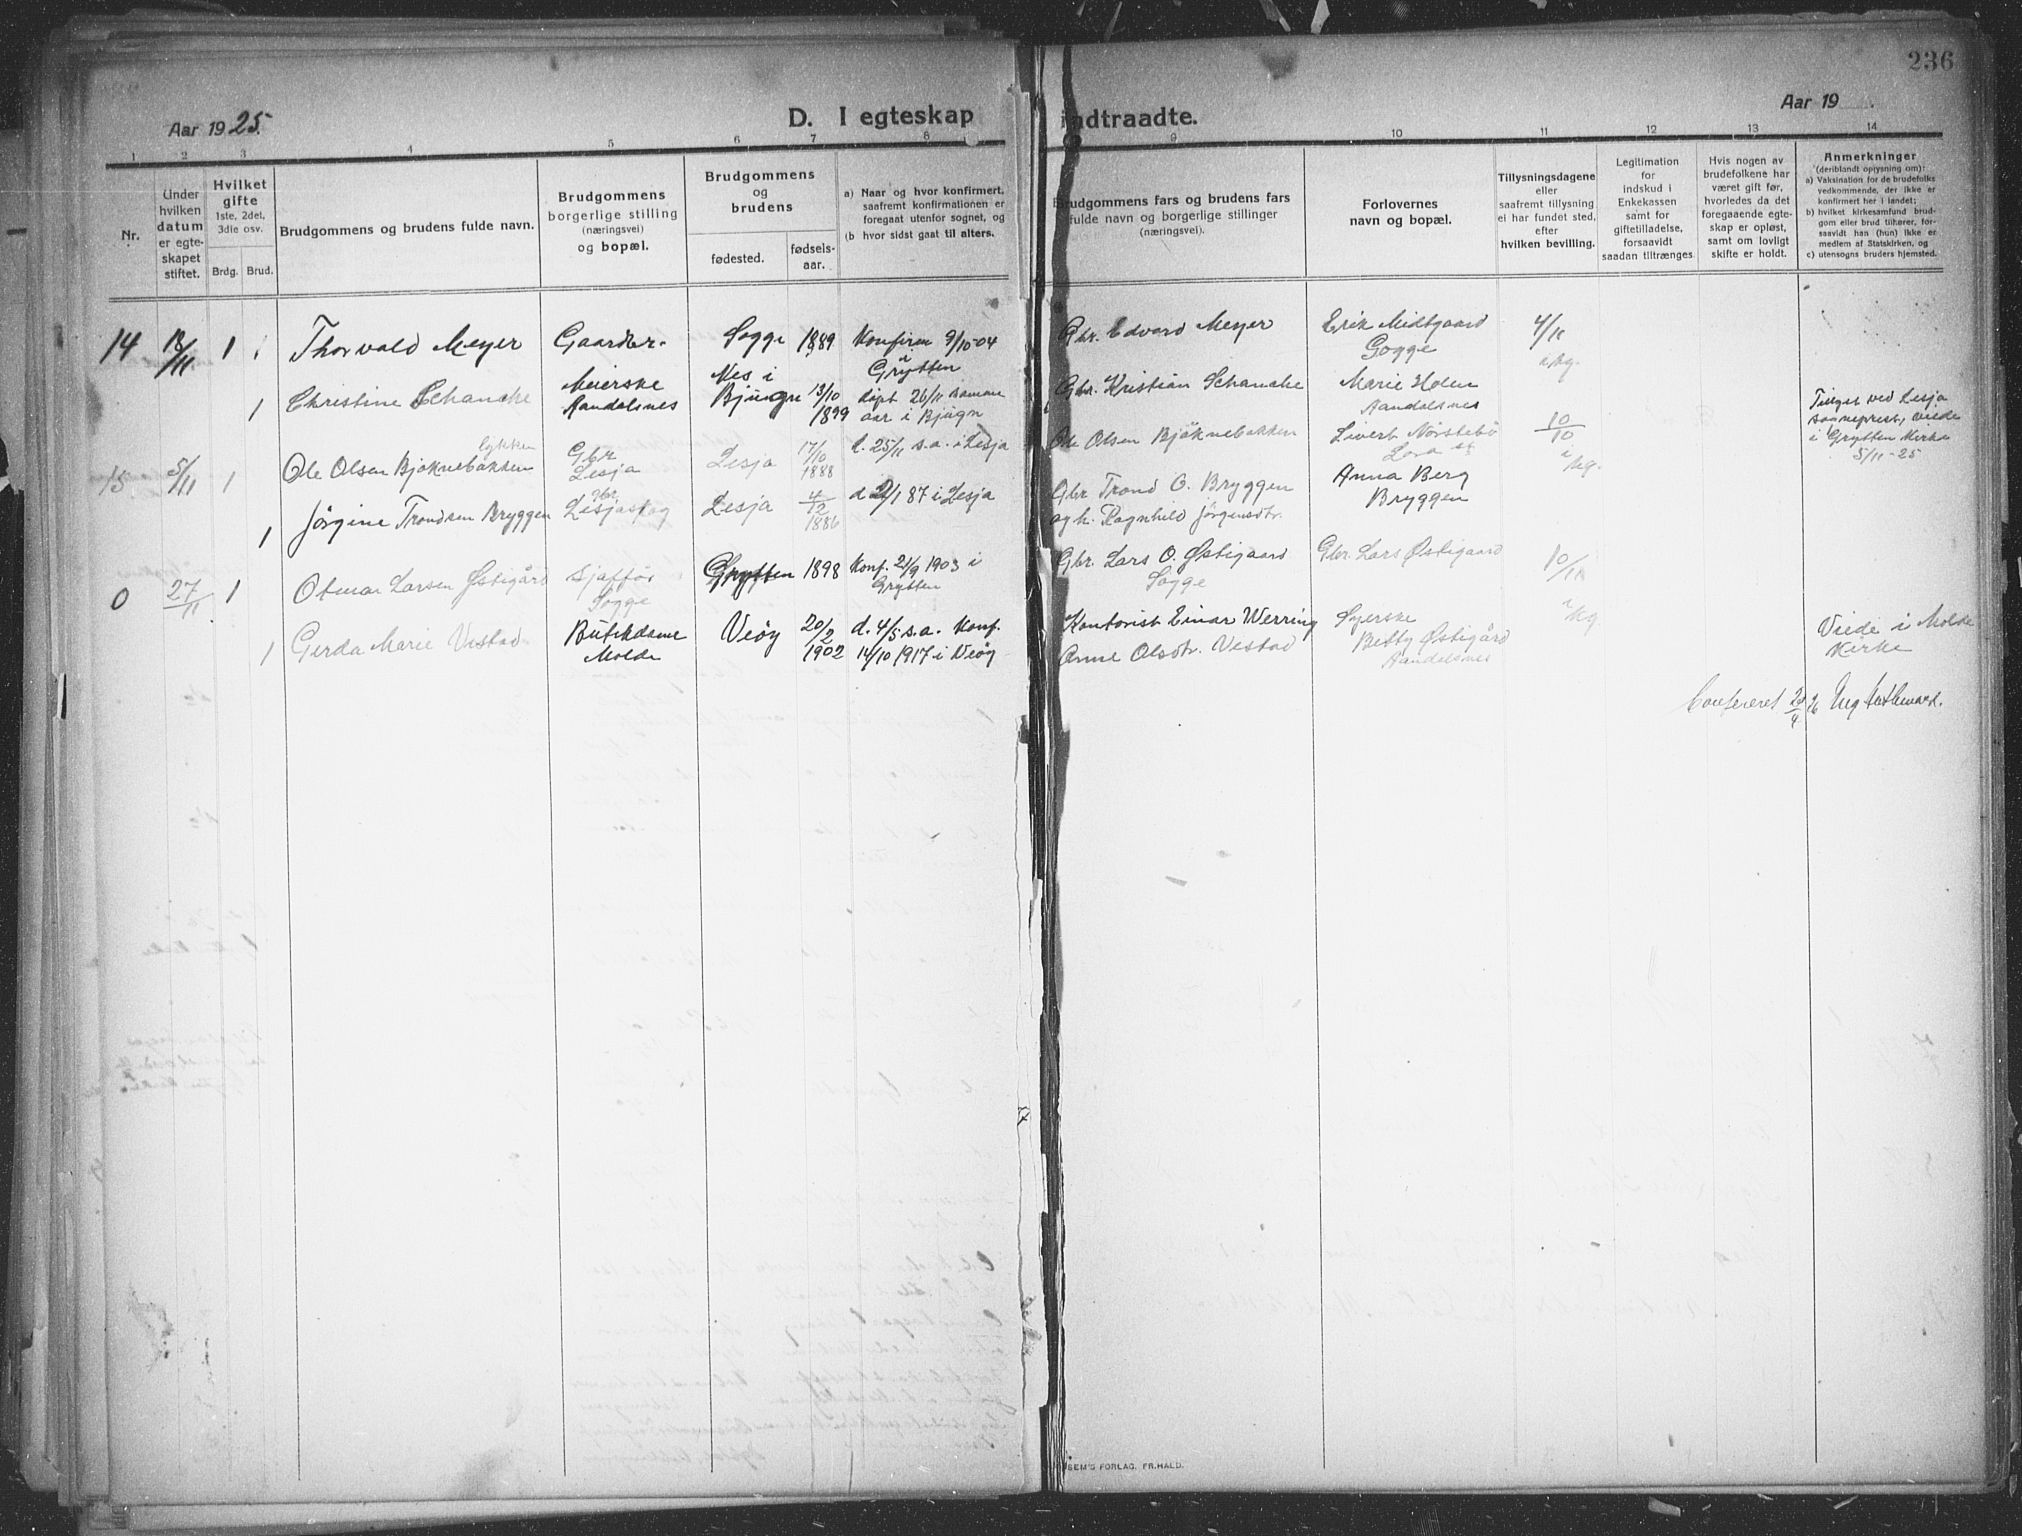 236
Aar 1925.
D. I egteskap indtraadte.
Aar 19
1 2 3 4 5 6 7 8 9 10 11 12 13 14
Nr.
Under hvilken datum er egte-skapet stiftet.
Hvilket gifte
1ste, 2del, 3die osv.
Brdg. Brud.
Brudgommens og brudens fulde navn.
Brudgommens borgerlige stilling (næringsvei) og bopæl.
Brudgommens og brudens
fødested.
fødsels-aar.
a) Naar og hvor konfirmert, saafremt konfirmationen er foregaat utenfor sognet, og
(b hvor sidst gaat til alters.
Brudgommens fars og brudens fars fulde navn og borgerlige stillinger (næringsvei).
Forlovernes navn og bopæl.
Tillysningsdagene eller saafremt tillysning ei har fundet sted, efter hvilken bevilling.
Legitimation for indskud i Enkekassen samt for giftetilladelse, forsaavidt saadan tiltrænges
Hvis nogen av brudefolkene har været gift før, hvorledes da det foregaaende egte-skap er opløst, samt om lovligt skifte er holdt.
Anmerkninger
(deriblandt oplysning om):
a) Vaksination for de brudefolks vedkommende, der ikke er konfirmert her i landet;
b) hvilket kirkesamfund brud-gom eller brud tilhører, for-saavidt han (hun) ikke er medlem af Statskirken, og
c) utensogns bruders hjemsted.
14 18/11 1 Thorvald Meyer Gaardbr. Sogge 1889 Konfirm 9/10-04 i Grytten Gbr. Edvard Meyer Erik Midtgaard Sogge 4/11
1 Christine Schancke Meierske Aandalsnes Nes i Bjugn 13/10 1899 døpt 26/11 samme aar i Bjugn Gbr. Kristian Schancke Marie Holm Aandalsnes
15 5/11 1 Ole Olsen Bjøknebakken Lykken Gbr Lesja Lesja 17/10 1888 d. 25/11 s.a. i Lesja Ole Olsen Bjøknebakken Sivert Nørstebø Lora st 10/10 Tillyst ved Lesja sogneprest, viede i Grytten Kirke 5/11-25
1 Jørgine Trondsen Bryggen Gbr. Lesjaskog Lesja 4/12 1886 d 2/1 87 i Lesja Gbr Trond O. Bryggen og h. Ragnhild Jørgensdtr. Anna Berg Bryggen
0 27/11 1 Otmar Larsen Østigård Sjaffør Sogge Grytten 1898 Konf. 21/9 1903 i Grytten Gbr. Lars O. Østigaard Sogge Gbr. Lars Østigaard 10/11
1 Gerda Marie Vestad Butikdame Molde Veøy 20/2 1902 d. 4/5 s.a. Konf. 14/10 1917 i Veøy Kontorist Einar Werring Anne Olsdtr. Vestad Syerske Betty Østigård Aandalsnes Viede i Molde Kirke
Confereret 26
SEM'S FORLAG. FR. HALD.